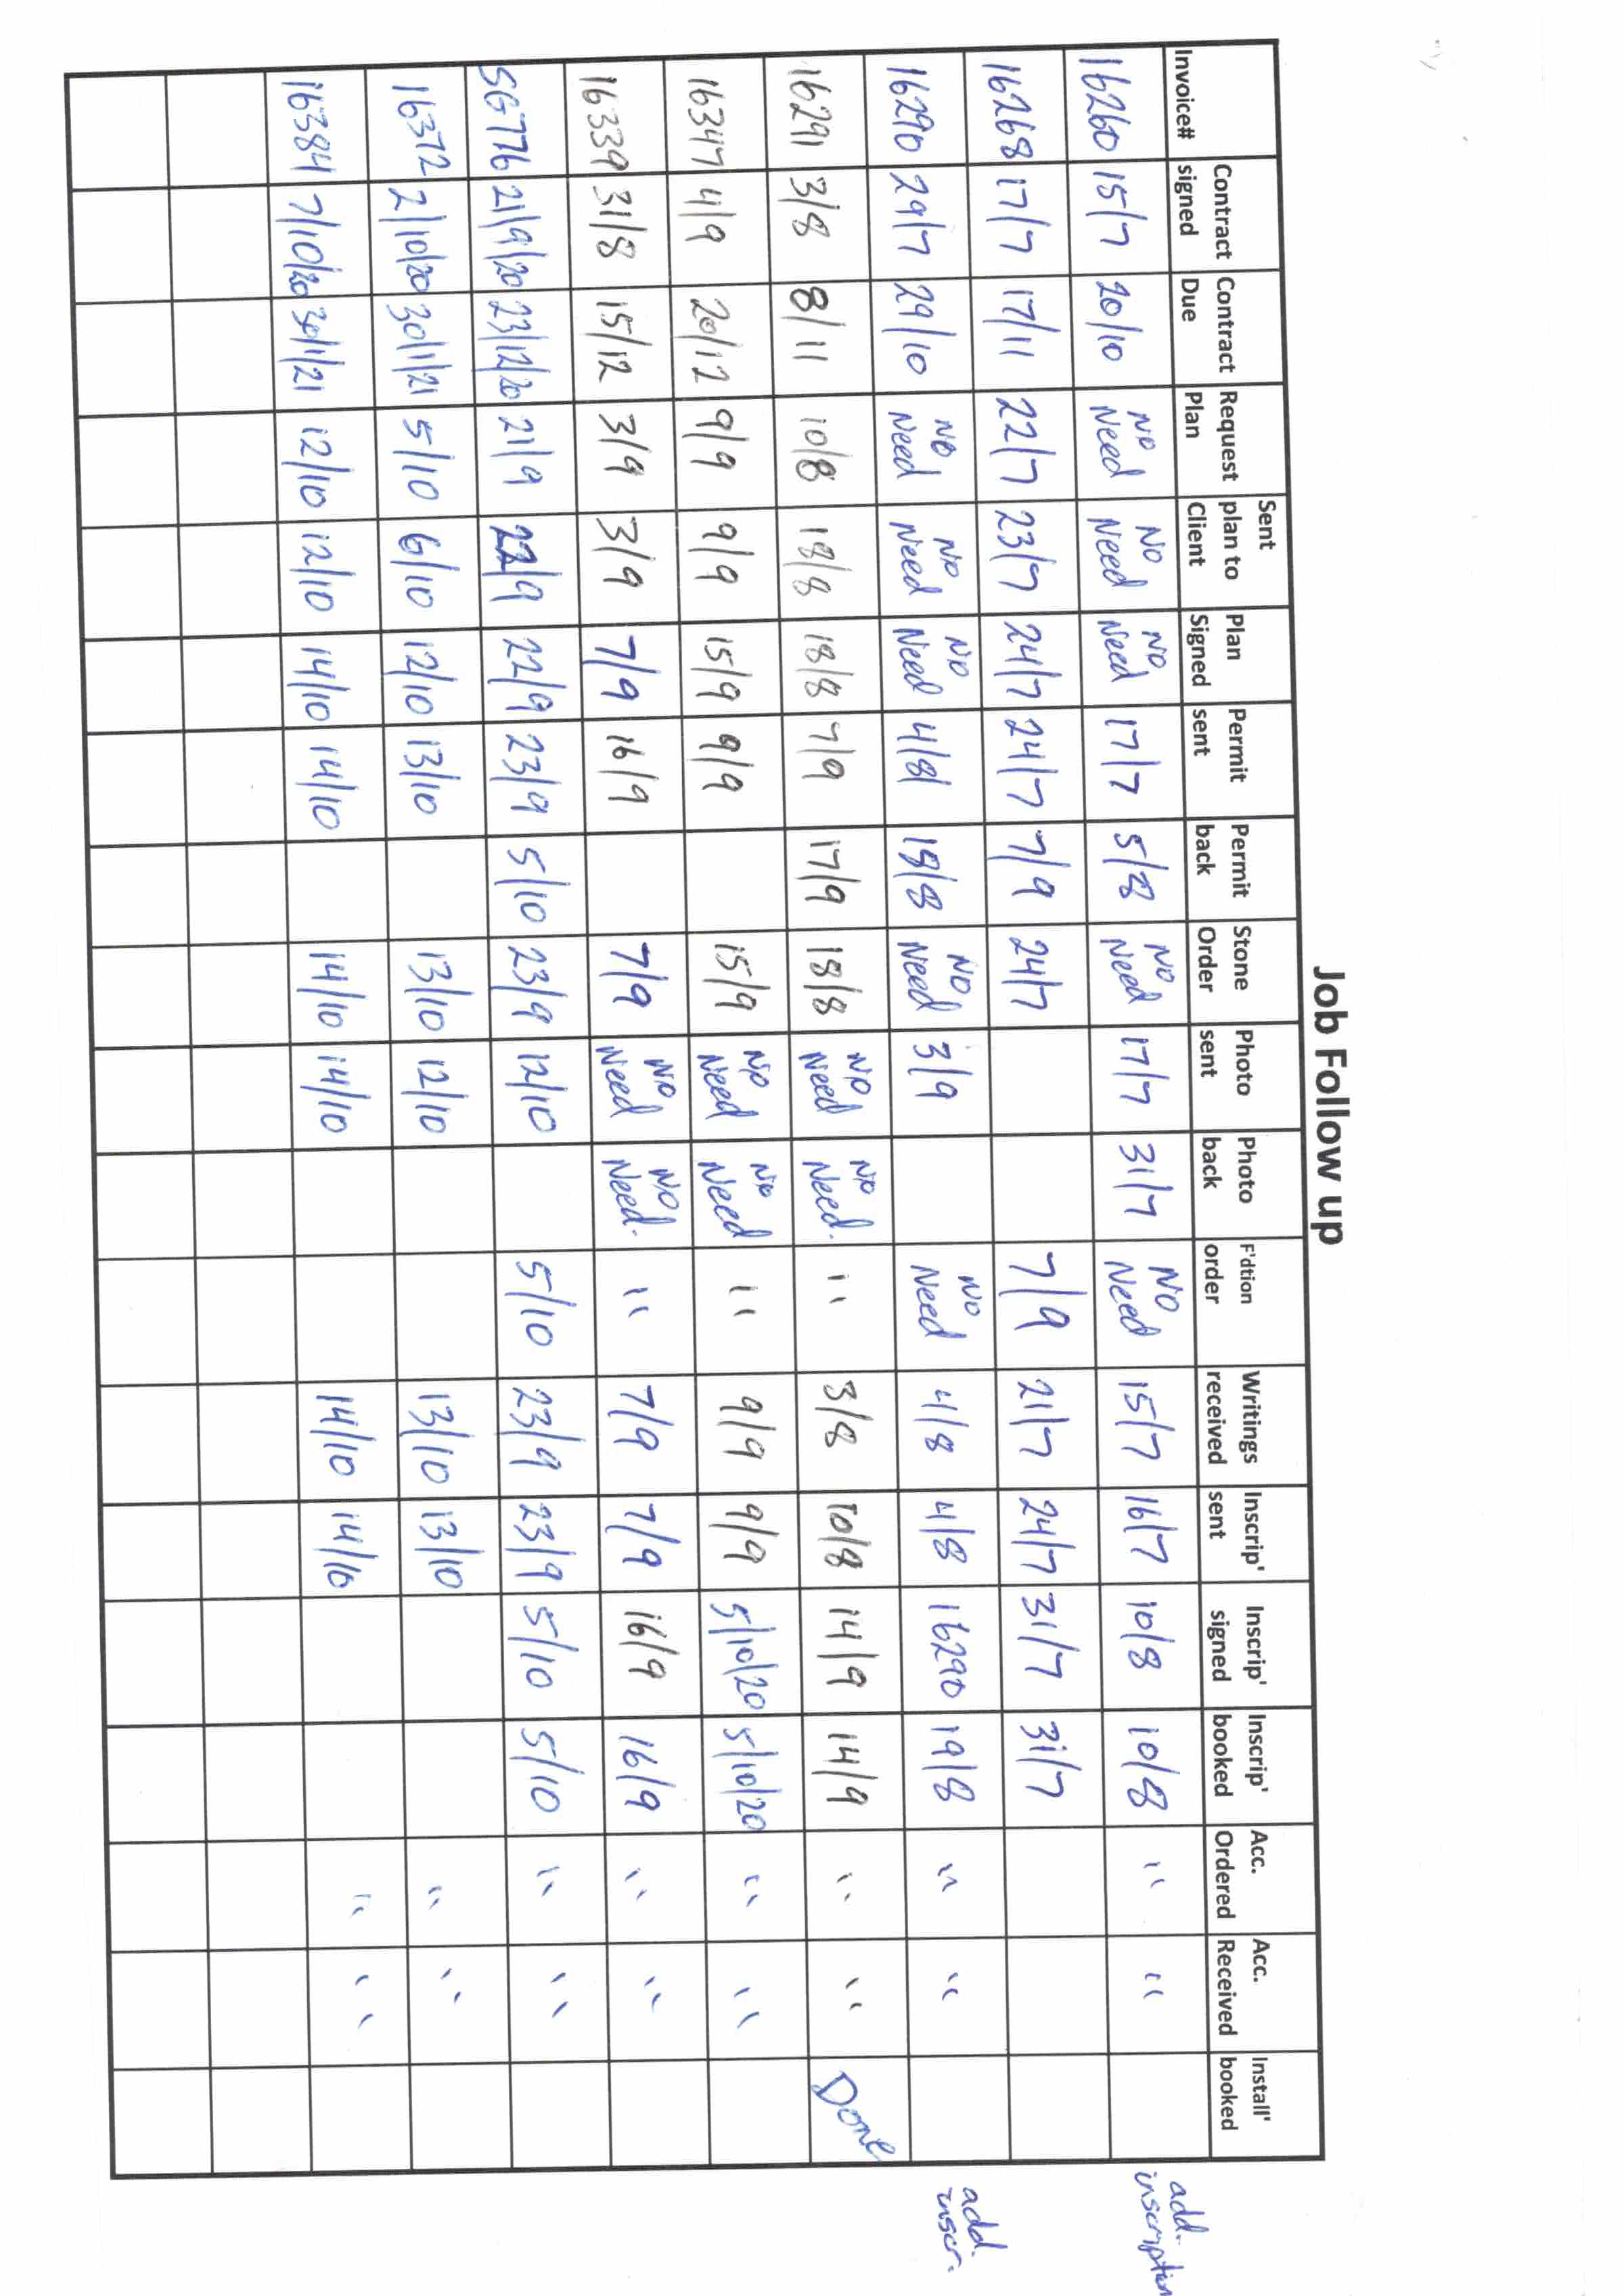 Job Follow up
Invoice# Contract signed Contract Due Request Plan Sent plan to Client Plan Signed Permit sent Permit back Stone Order Photo sent Photo back F'dtion order Writings received Inscrip' sent Inscrip' signed Inscrip' booked Acc. Ordered Acc. Received Install' booked
16260 15/7 20/10 NO Need NO Need NO Need 17/7 5/8 NO Need 17/7 31/7 NO Need 15/7 16/7 10/8 10/8 " " add. inscription
16268 17/7 17/11 22/7 23/7 24/7 24/7 7/9 24/7 7/9 21/7 24/7 31/7 31/7
16290 29/7 29/10 NO Need NO Need NO Need 4/8 18/8 NO Need 3/9 NO Need 4/8 4/8 16290 19/8 " " add. inscr.
16291 3/8 8/11 10/8 18/8 18/8 7/9 17/9 18/8 NO Need NO Need. " 3/8 10/8 14/9 14/9 " " Done
16347 4/9 20/12 9/9 9/9 15/9 9/9 15/9 NO Need NO Need " 9/9 9/9 5/10/20 5/10/20 " "
16339 31/8 15/12 3/9 3/9 7/9 16/9 7/9 NO Need NO Need. " 7/9 7/9 16/9 16/9 " "
SG776 21/9/20 23/12/20 21/9 22/9 22/9 23/9 5/10 23/9 12/10 5/10 23/9 23/9 5/10 5/10 " "
16372 2/10/20 30/1/21 5/10 6/10 12/10 13/10 13/10 12/10 13/10 13/10 " "
16384 7/10/20 30/1/21 12/10 12/10 14/10 14/10 14/10 14/10 14/10 14/10 " "